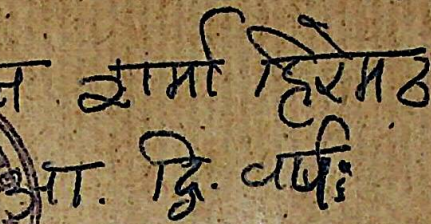 न शर्मा हिरेमठ
आ. द्वि. वर्षः